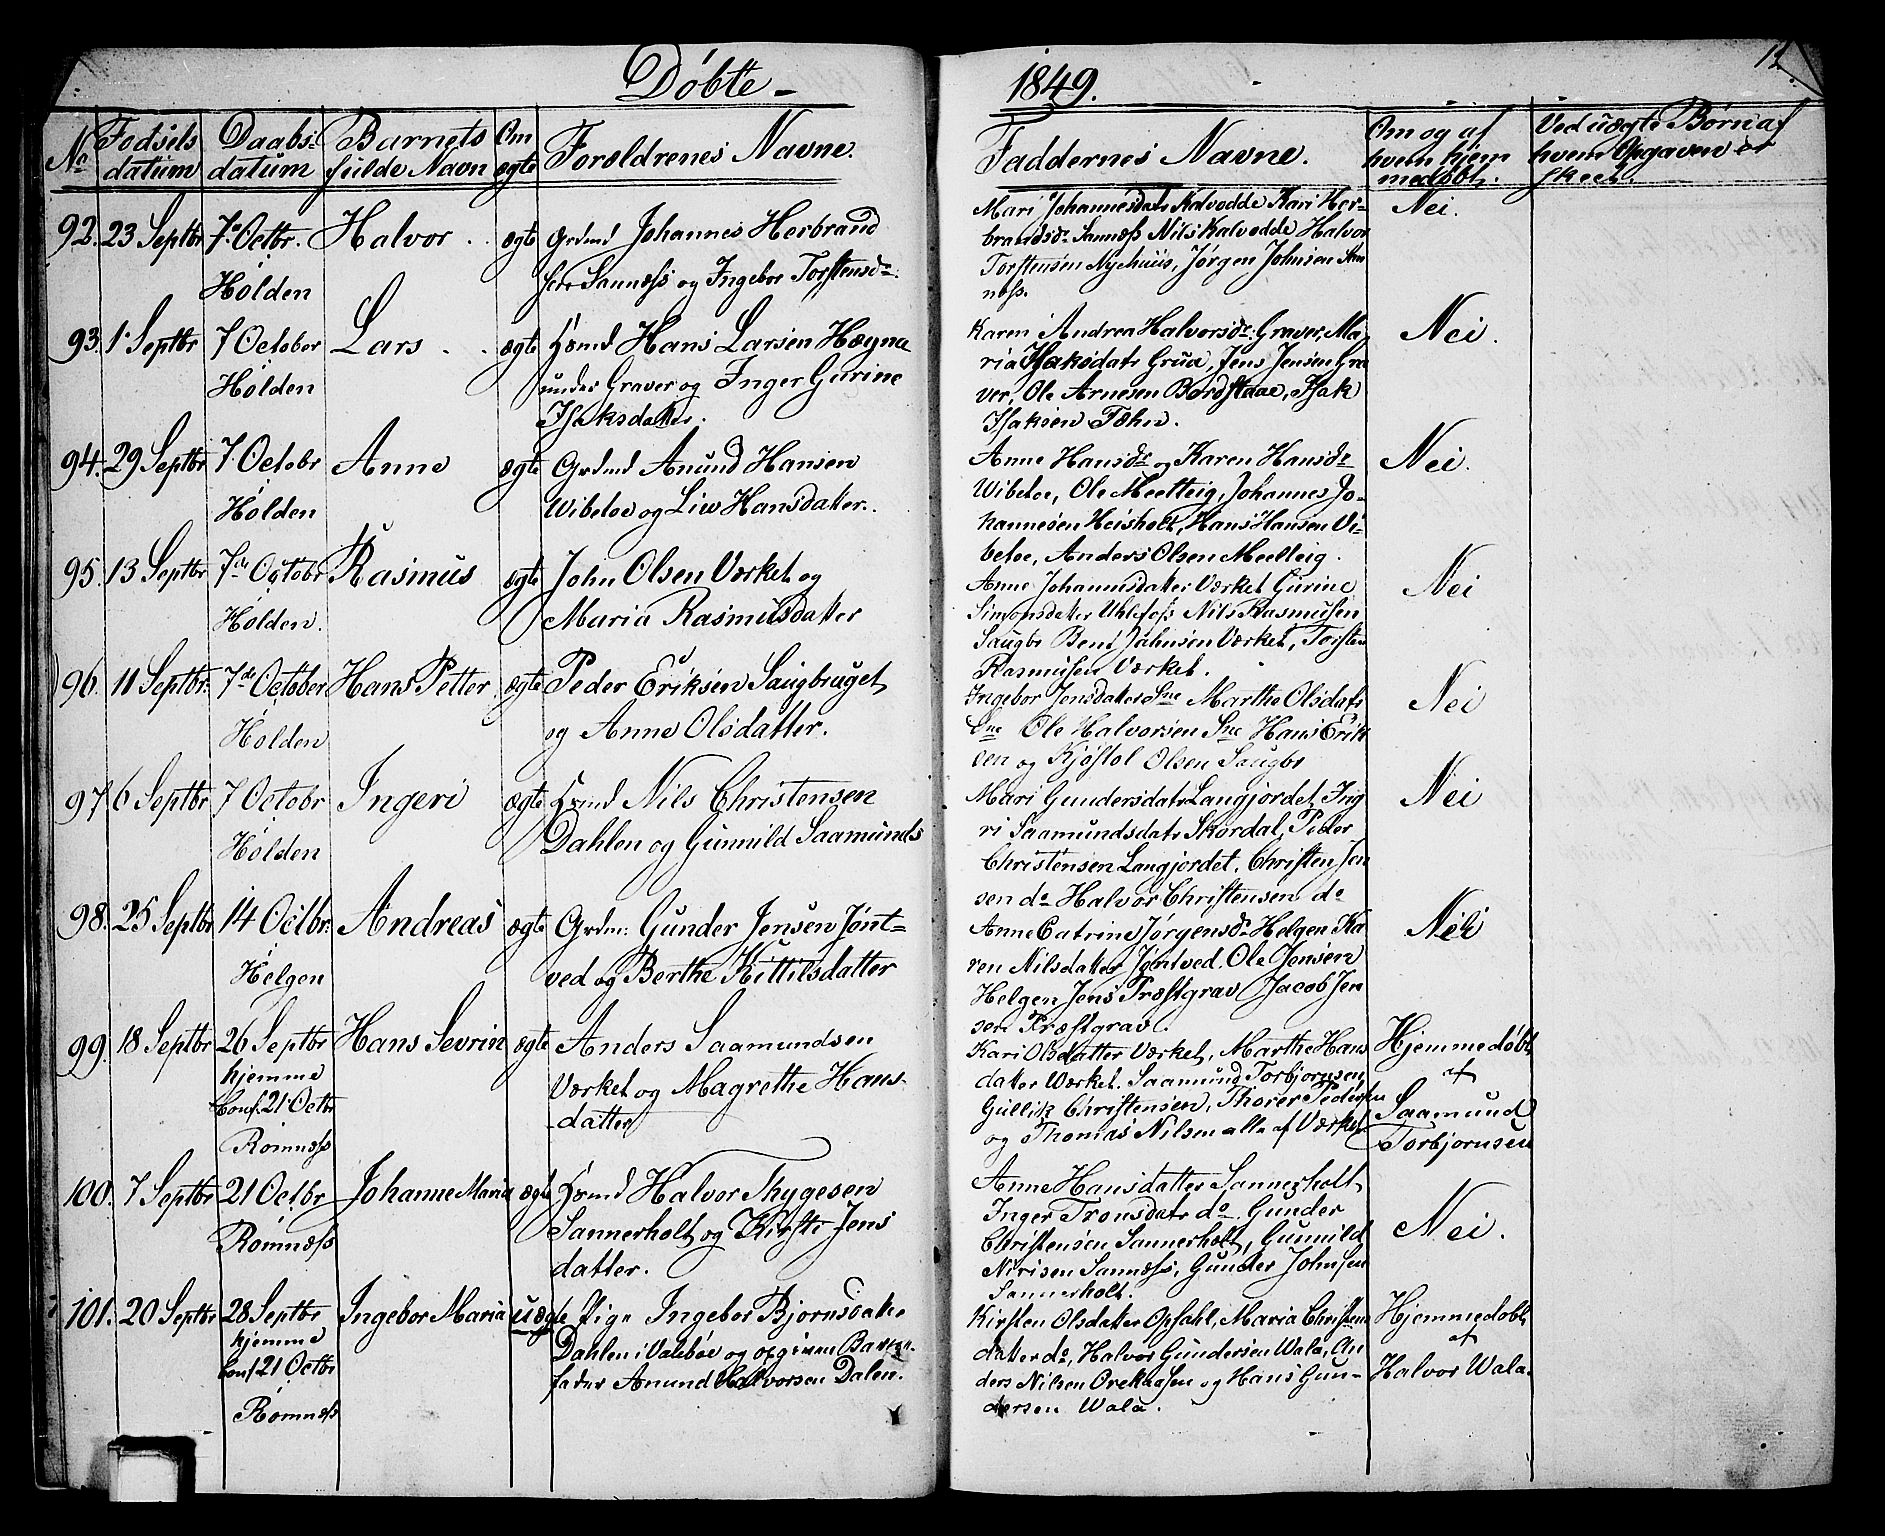 Döbte
1849.
12
No
Fødsels
datum
Daabs-
datum
Barnets
fulde Navn
Om
ægte
Forældrenes Navne.
Faddernes Navne.
Om og af
hvem hjem
medøbt.
Ved uægte Børn af
hvem Opgaven er
skeet.
92. 23 Septbr 7de Octbr. Halvor ægte Grdmd Johannes Herbrand
Holden
sen Sannæss og Ingebor Torstensdr.
Mari Johannesdatr Kalvedde Kari Her-
brandsdr Sannæss Nils Kalvedde Halvor
Torstensen Nyehuus, Jørgen Johnsen San
næss.
Nei.
93. 1 Septbr 7 October Lars ægte Hsmd Hans Larsen Hægne
Holden
under Graver og Inger Gurine
Isaksdatter.
Karen Andrea Halvorsdr. Graver, Ma-
ria Isaksdatr Grua, Jens Jensen Gra
ver, Ole Arnesen Bordstaae, Isak
Isaksen Tæhn.
Nei.
94. 29 Septbr 7 Octobr Anne ægte Grdmd Anund Hansen
Holden
Wibetoe og Liv Hansdatter.
Anne Hansdr og Karen Hansdr
Wibetoe, Ole Meelteig, Johannes Jo-
hannesen Heisholt, Hans Hansen Vi-
betoe, Anders Olsen Meelteig.
Nei.
95. 13 Septbr 7de Octobr Rasmus ægte John Olsen Værket og
Holden.
Maria Rasmusdatter
Anne Johannisdatter Værket Gurine
Simonsdatter Uhlefoss Nils Rasmusen
Saugbr Bent Jahnsen Værket, Torsten
Rasmusen Værket.
Nei
96. 11 Septbr. 7de October Hans Petter ægte Peder Eriksen Saugbruget
Holden
og Anne Olsdatter.
Ingebor Jensdatter Sne Marthe Olsdatr
Sne Ole Halvorsen Sne Hans Erik
sen og Kjöstol Olsen Saugbr
Nei
97 6 Septbr 7 Octobr Ingeri ægte Hsmd Nils Christensen
Holden
Dahlen og Gunnild Saamunds
Mari Gundersdatr Langjordet, Ing
ri Saamundsdatr Skordal, Peder
Christensen Langjordet, Christen Jen
sen do Halvor Christensen do
Nei
98. 25 Septbr 14 Octbr. Andreas ægte Grdm: Gunder Jensen Jønt=
Helgen
ved og Berthe Kittilsdatter
Anne Catrine Jørgensdr Helgen Ka
ren Nilsdatter Jøntved, Ole Jensen
Helgen Jens Præstgrav Jacob Jen
sen Præstgrav.
Nei
99. 18 Septbr 26 Septbr Hans Sevrin ægte Anders Saamundsen
hjemme
Conf. 21 Octbr
Romnæss
Værket og Magrethe Hans-
datter
Kari Olsdatter Værket, Marthe Hans
datter Værket. Saamund Torbjornsen
Gullik Christensen, Thorer Pedersen
og Thomas Nilsen alle af Værket
Hjemmedøbt
af
Saamund
Torbjornsen
100. 7 Septbr 21 Octbr Johanne Maria ægte Hsmd Halvor Thygesen
Romnæss
Sannerholt og Kirsti Jens
datter.
Anne Hansdatter Sannerholt,
Inger Tronsdatr do. Gunder
Christensen Sannerholt, Gunnild
Nirisen Sannæss, Gunder Johnsen
Sannerholt.
Nei.
101. 20 Septbr 28 Septbr Ingebor Maria uægte Pige Ingebor Bjornsdatter
hjemme
Conf 21 Octbr
Romnæss
Dahlen i Valebøe og opgiven Barne-
fader Anund Halvorsen Dalen.
Kirsten Olsdatter Opsahl, Maria Christen
datter do, Halvor Gundersen Wala, An
ders Nilsen Orekaasen og Hans Gun-
dersen Wala.
Hjemmedobt
af
Halvor Wala.